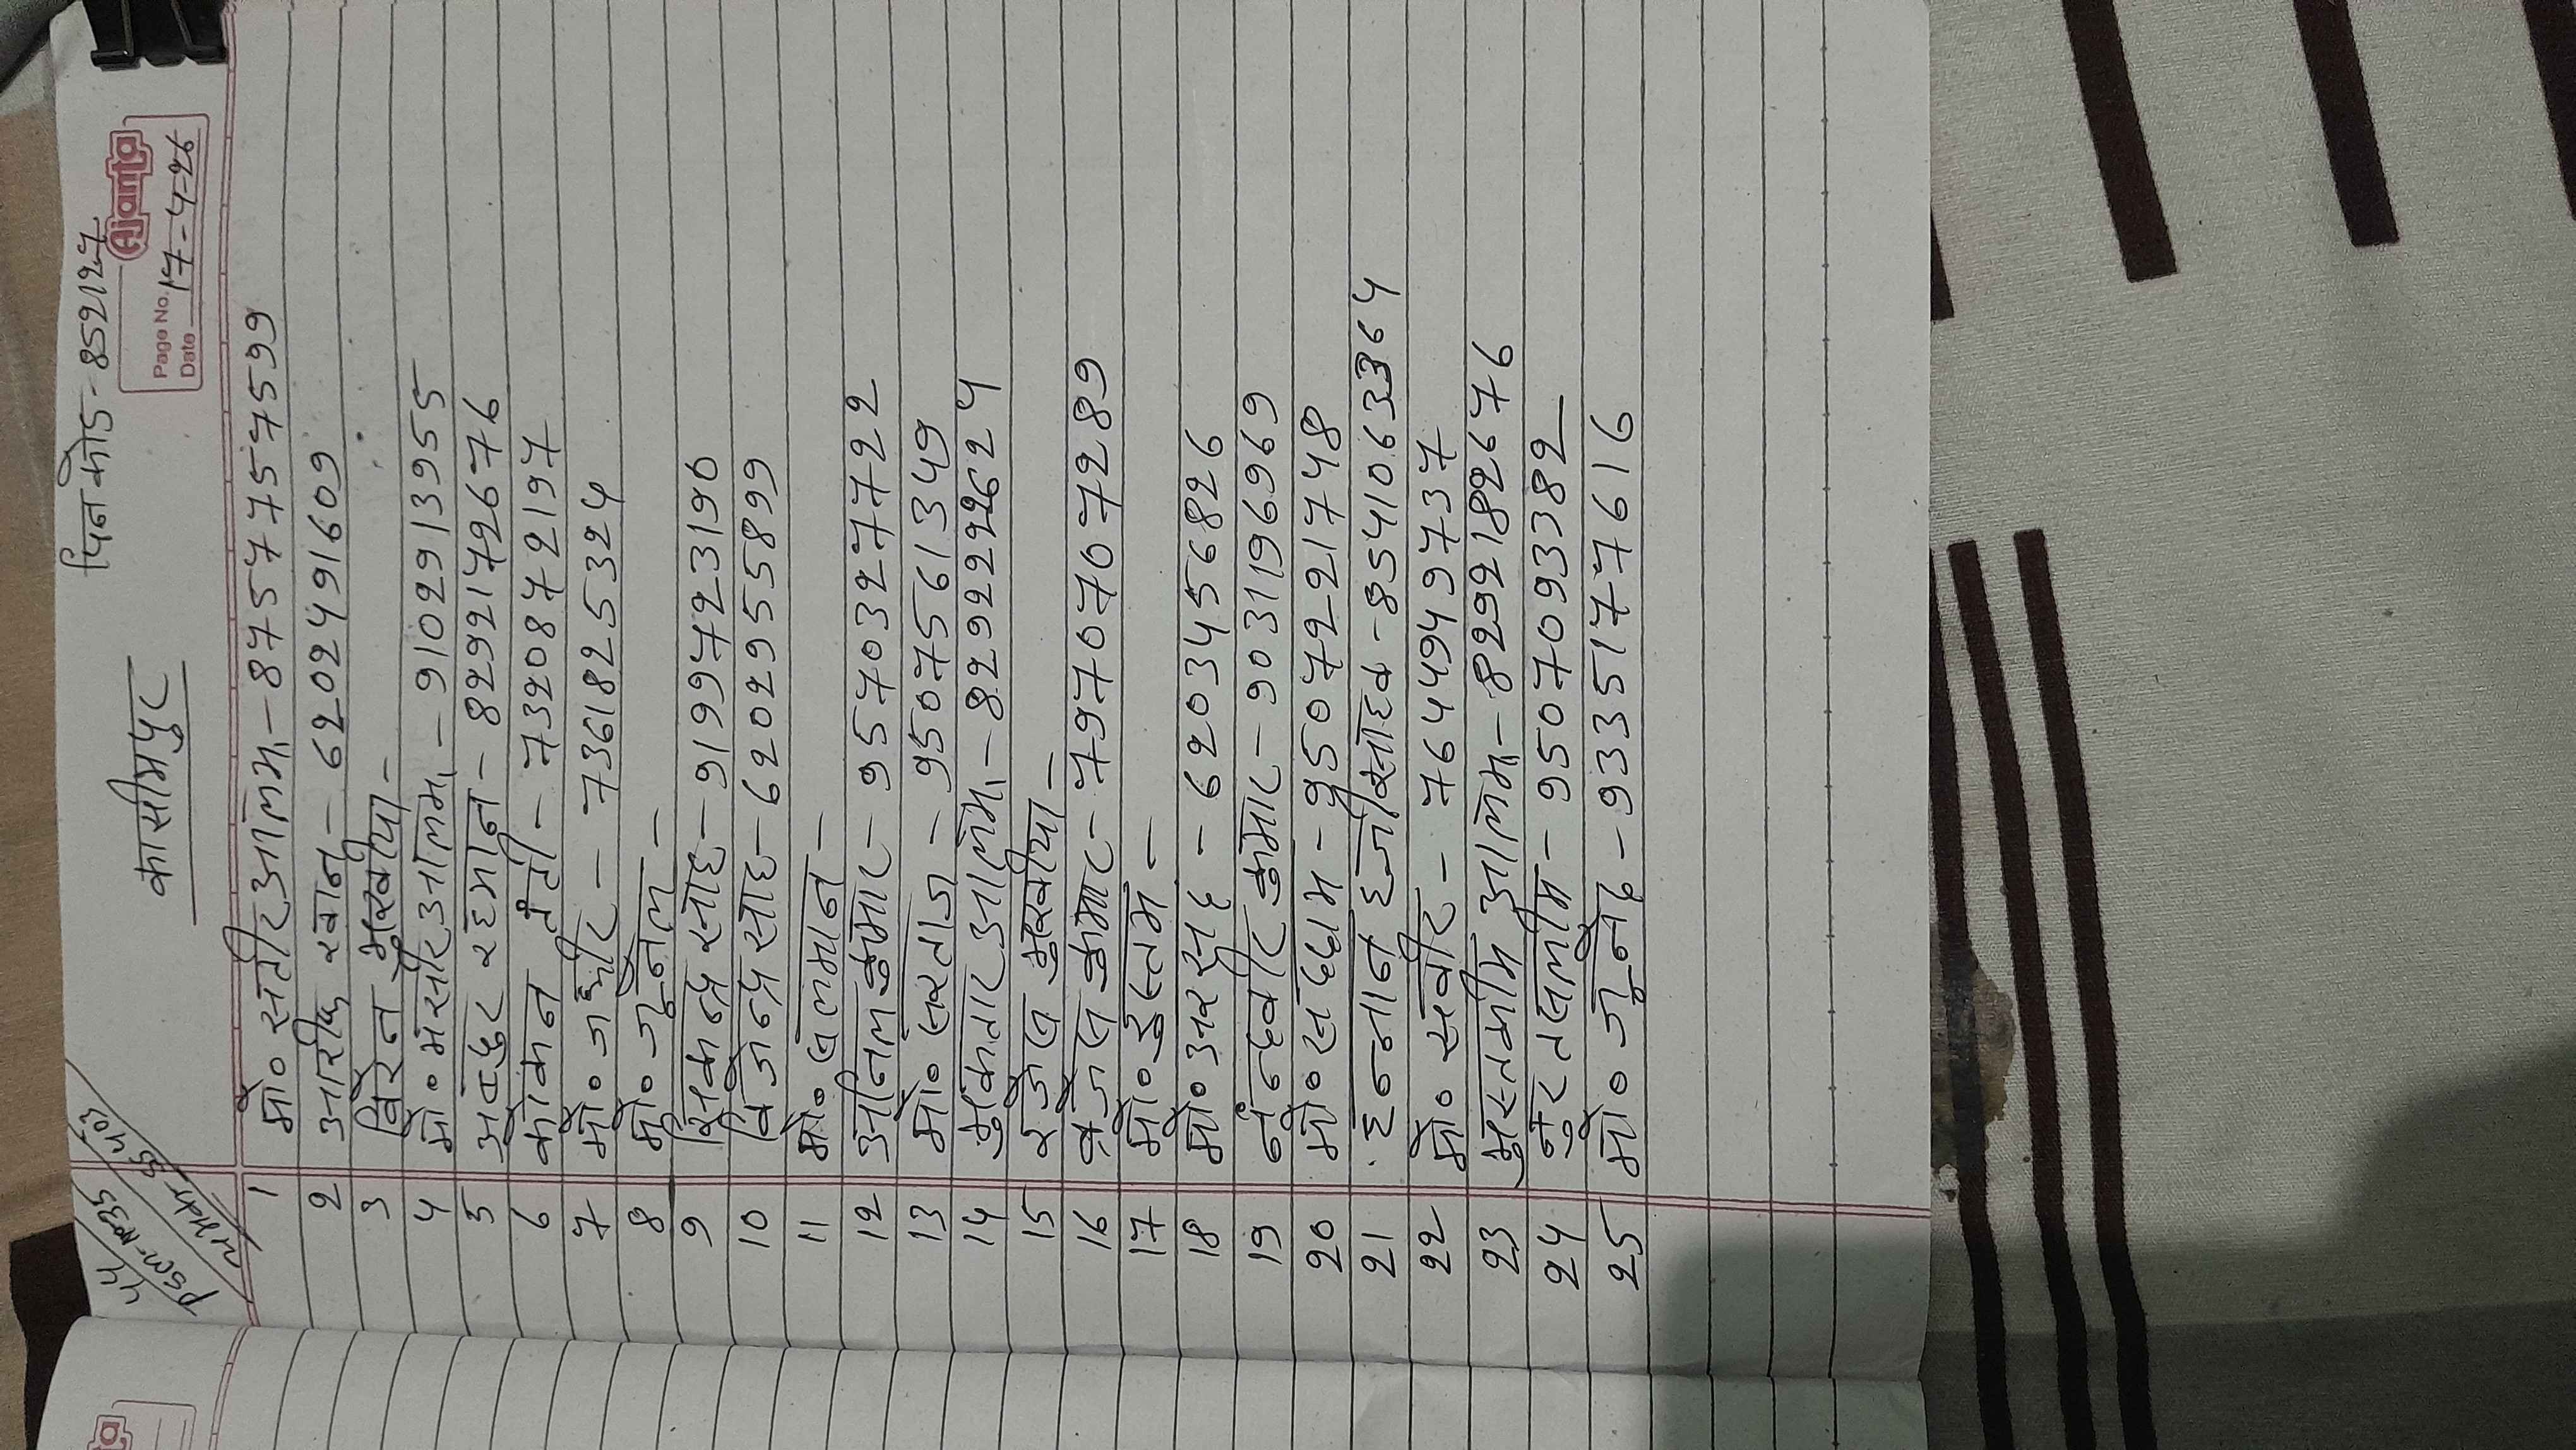 पिन कोड - 852127
कासीमपुर
Ajanta
Page No.
Date 17-4-26
1 मो० सतीर आलम - 8757757599
2 आरीफ खान - 6202491609
3 विरेन मुखीया -
4 मो० मंसीर आलम - 9102913955
5 अवदुर रहमान - 8292172676
6 कोकन तंती - 7320872197
7 मो० जमीर - 7361825324
8 मो० जूनैल -
9 सिकेन्द्र साह - 9199723190
10 विजेन्द्र साह - 6202955899
11 मो० लुलमान -
12 अनिल कुमार - 9570327722
13 मो० सरताज - 9507561349
14 मुकतार आलम - 8292222624
15 राजेस मुखीया -
16 व्रजेस कुमार - 7970707289
17 मो० रुस्तम -
18 मो० अरसद - 6203456826
19 नंन्दवीर कुमार - 9031196969
20 मो० सददाम - 9507221748
21 हन्नान हजीसाहेब - 8541063364
22 मो० सवीर - 7644949737
23 मुस्तकीम आलम - 8292182676
24 नुरसलीम - 9507093382
25 मो० जूनैद - 9335177616